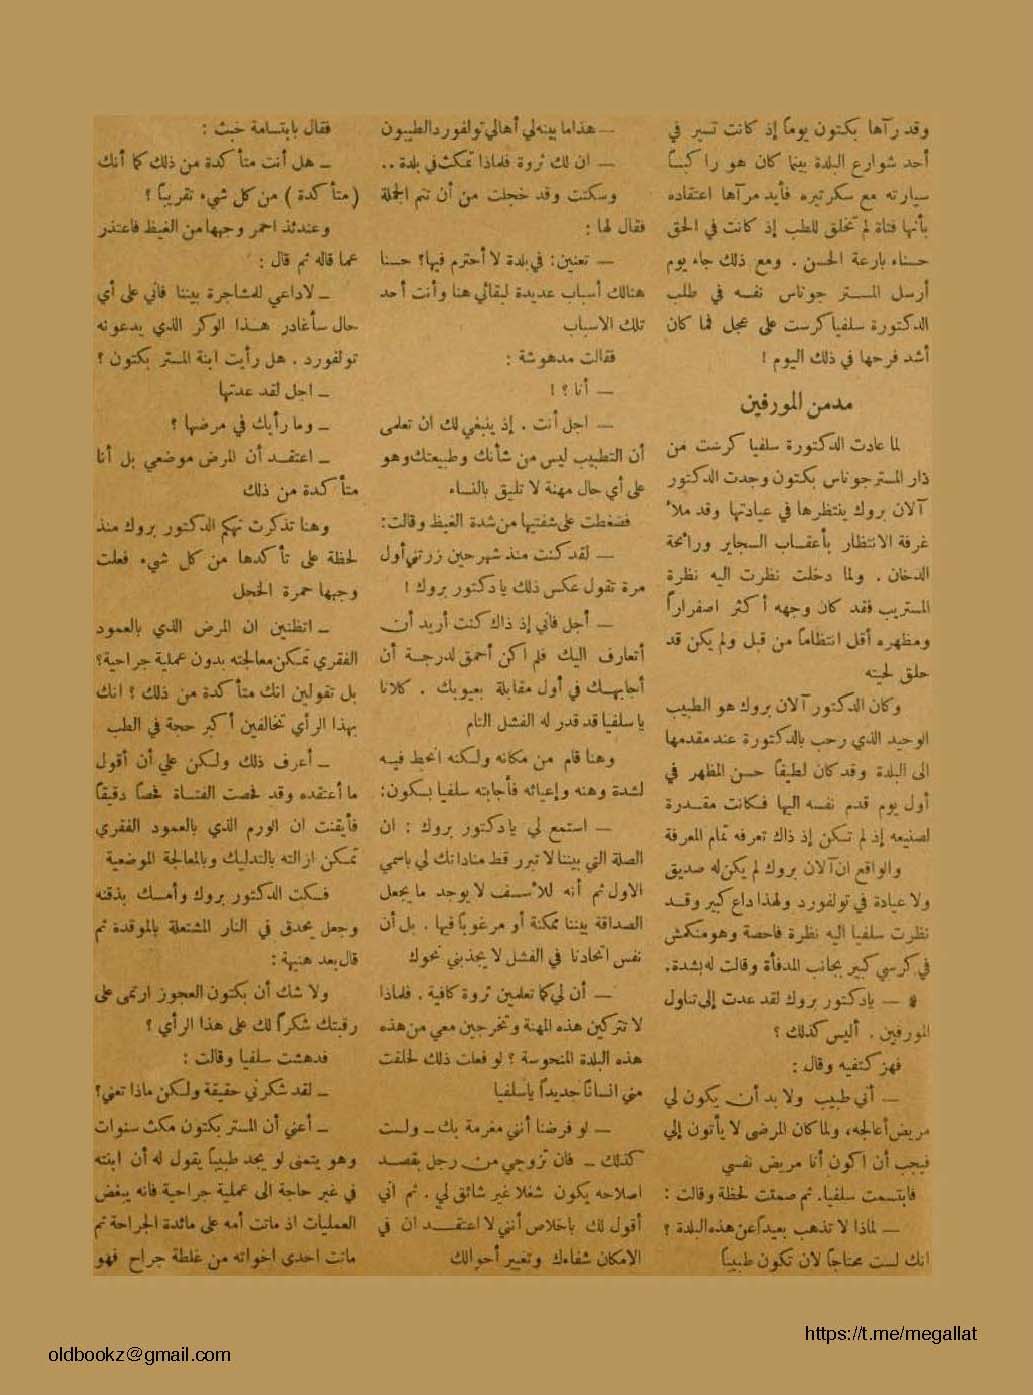 وقد رآها بكتون يوماً إذ كانت تسير في
أحد شوارع البلدة بينما كان هو راكباً
سيارته مع سكرتيره فأيد مرآها اعتقاده
بأنها فتاة لم تخلق للطب إذ كانت في الحق
حسناء بارعة الحسن . ومع ذلك جاء يوم
أرسل المستر جوناس نفسه في طلب
الدكتورة سلفيا كرست على عجل فما كان
أشد فرحها في ذلك اليوم !
مدمن المورفين
لما عادت الدكتورة سلفيا كرست من
دار المستر جوناس بكتون وجدت الدكتور
آلان بروك ينتظرها في عيادتها وقد ملأ
غرفة الانتظار بأعقاب السجاير ورائحة
الدخان . ولما دخلت نظرت اليه نظرة
المستريب فقد كان وجهه أكثر اصفراراً
ومظهره أقل انتظاماً من قبل ولم يكن قد
حلق لحيته
وكان الدكتور آلان بروك هو الطبيب
الوحيد الذي رحب بالدكتورة عند مقدمها
الى البلدة وقد كان لطيفاً حسن المظهر في
أول يوم قدم نفسه اليها فكانت مقدرة
لصنيعه إذ لم تكن إذ ذاك تعرفه تمام المعرفة
والواقع ان آلان بروك لم يكن له صديق
ولا عيادة في تولفورد ولهذا داع كبير وقد
نظرت سلفيا اليه نظرة فاحصة وهو منكمش
في كرسي كبير بجانب المدفأة وقالت له بشدة.
* — يا دكتور بروك لقد عدت إلى تناول
المورفين . أليس كذلك ؟
فهز كتفيه وقال :
— أني طبيب ولا بد أن يكون لي
مريض أعالجه، ولما كان المرضى لا يأتون إلي
فيجب أن اكون أنا مريض نفسي
فابتسمت سلفيا. ثم صمتت لحظة وقالت :
— لماذا لا تذهب بعيداً عن هذه البلدة ؟
انك لست محتاجاً لان تكون طبيباً
— هذا ما بينه لي أهالي تولفورد الطيبون
— ان لك ثروة فلماذا تمكث في بلدة ..
وسكتت وقد خجلت من أن تتم الجملة
فقال لها :
— تعنين: في بلدة لا أحترم فيها؟ حسنا
هنالك أسباب عديدة لبقائي هنا وأنت أحد
تلك الاسباب
فقالت مدهوشة :
— أنا ؟ !
— اجل أنت . إذ ينبغي لك ان تعلمى
أن التطبيب ليس من شأنك وطبيعتك وهو
على أي حال مهنة لا تليق بالنساء
فضغطت على شفتيها من شدة الغيظ وقالت:
— لقد كنت منذ شهر حين زرتني أول
مرة تقول عكس ذلك يا دكتور بروك !
— أجل فاني إذ ذاك كنت أريد أن
أتعارف اليك فلم اكن أحمق لدرجة أن
أجابهك في أول مقابلة بعيوبك . كلانا
يا سلفيا قد قدر له الفشل التام
وهنا قام من مكانه ولكنه انحط فيه
لشدة وهنه وإعيائه فأجابته سلفيا بسكون:
— استمع لي يا دكتور بروك : ان
الصلة التي بيننا لا تبرر قط مناداتك لي باسمي
الاول ثم أنه للأسف لا يوجد ما يجعل
الصداقة بيننا ممكنة أو مرغوباً فيها . بل أن
نفس اتحادنا في الفشل لا يجذبني نحوك
— أن لي كما تعلمين ثروة كافية . فلماذا
لا تتركين هذه المهنة وتخرجين معي من هذه
هذه البلدة المنحوسة ؟ لو فعلت ذلك لخلقت
مني انساناً جديداً يا سلفيا
— لو فرضنا أنني مغرمة بك — ولست
كذلك — فان تزوجي من رجل بقصد
اصلاحه يكون شغلا غير شائق لي . ثم اني
أقول لك باخلاص أنني لا اعتقد ان في
الامكان شفاءك وتغيير أحوالك
فقال بابتسامة خبث :
— هل أنت متأكدة من ذلك كما أنك
(متأكدة) من كل شيء تقريباً ؟
وعندئذ احمر وجهها من الغيظ فاعتذر
عما قاله ثم قال :
— لا داعي لمشاجرة بيننا فاني على أي
حال سأغادر هذا الوكر الذي يدعونه
تولفورد . هل رأيت ابنة المستر بكتون ؟
— اجل لقد عدتها
— وما رأيك في مرضها ؟
— اعتقد أن المرض موضعي بل أنا
متأكدة من ذلك
وهنا تذكرت تهكم الدكتور بروك منذ
لحظة على تأكدها من كل شيء فعلت
وجهها حمرة الخجل
— اتظنين ان المرض الذي بالعمود
الفقري تمكن معالجته بدون عملية جراحية؟
بل تقولين انك متأكدة من ذلك ؟ انك
بهذا الرأي تخالفين أكبر حجة في الطب
— أعرف ذلك ولكن علي أن أقول
ما أعتقده وقد فحصت الفتاة فحصاً دقيقاً
فأيقنت ان الورم الذي بالعمود الفقري
تمكن ازالته بالتدليك وبالمعالجة الموضعية
فسكت الدكتور بروك وأمسك بذقنه
وجعل يحدق في النار المشتعلة بالموقدة ثم
قال بعد هنيهة :
ولا شك أن بكتون العجوز ارتمى على
رقبتك شكراً لك على هذا الرأي ؟
فدهشت سلفيا وقالت :
— لقد شكرني حقيقة ولكن ماذا تعني؟
— أعني أن المستر بكتون مكث سنوات
وهو يتمنى لو يجد طبيباً يقول له أن ابنته
في غير حاجة الى عملية جراحية فانه يبغض
العمليات اذ ماتت أمه على مائدة الجراحة ثم
ماتت احدى اخواته من غلطة جراح فهو
https://t.me/megallat
oldbookz@gmail.com